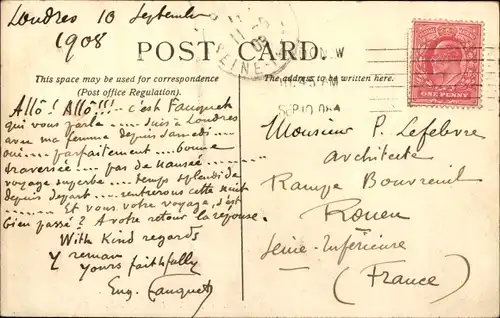 Londres 10 Septembre
1908
POST CARD.
This space may be used for correspondence
(Post office Regulation).
The address to be written here.
LONDON. W
SEP 10 08
ONE PENNY
Allô! Allô!!! ---- c'est Fauquet
qui vous parle ---- suis à Londres
avec ma femme depuis samedi ----
oui ---- parfaitement ---- bonne
traversée ---- pas de nausée ----
voyage superbe ---- temps splendide
depuis départ ---- rentrerons cette nuit
---- Et vous votre voyage, s'est
bien passé? A votre retour la réponse.
With Kind regards
Y remain
Yours faithfully
Eug. Fauquet
Monsieur P. Lefebvre
Architecte
Rampe Bouvreuil
Rouen
Seine-Inférieure
(France)